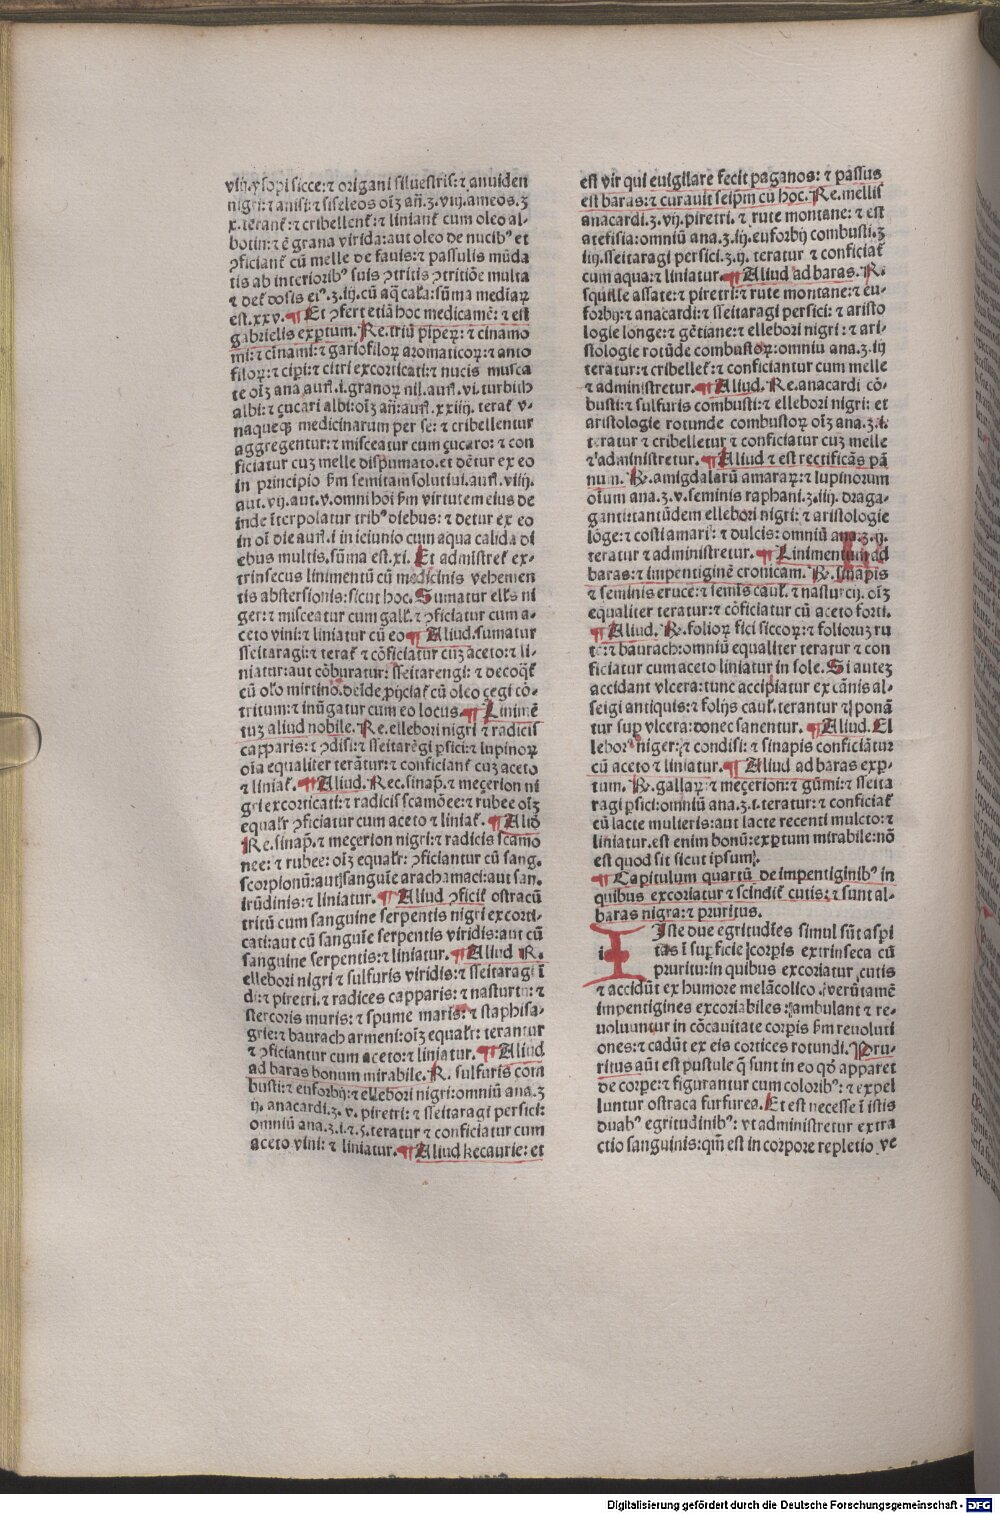 viij. ysopi sicce: ⁊ origani siluestris: ⁊ anuiden
nigri: ⁊ anisi: ⁊ siseleos oĩʒ añ. ʒ. viij. ameos. ʒ
x. terant᷑: ⁊ cribellent᷑: ⁊ liniant᷑ cum oleo al-
botin: ⁊ ẽ grana virida: aut oleo de nucibꝰ et
ꝯficiant᷑ cũ melle de fauis: ⁊ passulis mũda
tis ab interioribꝰ suis ꝯtritis ꝯtritiõe multa
⁊ det᷑ dosis eiꝰ. ʒ. iij. cũ aq̃ cal̃a: sũma mediaꝝ
est. xxv. ¶ Et ꝯfert etiã hoc medicamẽ: ⁊ est
gabrielis exꝑtum. Re. triũ piperꝝ: ⁊ cinamo
mi: ⁊ cinami: ⁊ gariofiloꝝ aromaticoꝝ: ⁊ anto
filoꝝ: ⁊ cipi: ⁊ citri excorticati: ⁊ nucis musca
te oĩʒ ana aur̃. i. granoꝝ nil. aur̃. vi. turbith
albi: ⁊ çucari albi: oĩʒ añ: aur̃. xxiiij. terat᷑ v-
naqueqꝫ medicinarum per se: ⁊ cribellentur
aggregentur: ⁊ misceatur cum çucaro: ⁊ con
ficiatur cuʒ melle dispumato. et dẽtur ex eo
in principio ẜm semitam solutiui. aur̃. viiij.
aut. vij. aut. v. omni hoĩ ẜm virtutem eius de
inde ĩterpolatur tribꝰ diebus: ⁊ detur ex eo
in oĩ die aur̃. i in ieiunio cum aqua calida di
ebus multis. sũma est. xi. Et admistret᷑ ex-
trinsecus linimentũ cũ medicinis vehemen
tis abstersionis: sicut hoc. Sumatur elłs ni
ger: ⁊ misceatur cum gall᷑. ⁊ ꝯficiatur cum a-
ceto vini: ⁊ liniatur cũ eo ¶ Aliud. sumatur
sseitaragi: ⁊ terat᷑ ⁊ cõficiatur cũʒ aceto: ⁊ li-
niatur: aut cõburatur: sseitarengi: ⁊ decoq̃t᷑
cũ oło mirtino. deĩde ꝓijciat᷑ cũ oleo çegi cõ-
tritum: ⁊ inũgatur cum eo locus. ¶ Linimẽ
tuʒ aliud nobile. Re. ellebori nigri ⁊ radicis
capparis: ⁊ ꝯdisi: ⁊ sseitarẽgi ꝑsici: ⁊ lupinoꝝ
oĩa equaliter terãtur: ⁊ conficiant᷑ cũʒ aceto
⁊ liniat᷑. ¶ Aliud. Rec. sinap̃. ⁊ meçerion ni
gri excorticati: ⁊ radicis scamõee: ⁊ rubee oĩʒ
equalr̃ ꝯficiatur cum aceto ⁊ liniat᷑. ¶ Aliđ
Re. sinap̃. ⁊ meçerion nigri: ⁊ radicis scamo
nee: ⁊ rubee: oĩʒ equalr̃: ꝯficiantur cũ sang.
scorpionũ: aut sanguĩe arachamaci: aut san.
irũdinis: ⁊ liniatur. ¶ Aliud ꝯficit᷑ ostracũ
tritũ cum sanguine serpentis nigri excorti-
cati: aut cũ sanguĩe serpentis viridis: aut cũ
sanguine serpentis: ⁊ liniatur. ¶ Aliud R.
ellebori nigri ⁊ sulfuris viridis: ⁊ sseitaragi ĩ
di: ⁊ piretri. ⁊ radices capparis: ⁊ nasturtij: ⁊
stercoris muris: ⁊ spume maris: ⁊ staphisa-
grie: ⁊ baurach armeni: oĩʒ equalr̃: terantur
⁊ ꝯficiantur cum aceto: ⁊ liniatur. ¶ Aliud
ad baras bonum mirabile. R. sulfuris com
busti: ⁊ euforbij: ⁊ ellebori nigri: omniũ ana. ʒ
ij. anacardi. ʒ. v. piretri: ⁊ sseitaragi persici:
omniũ ana. ʒ. i. ⁊. ϛ. teratur ⁊ conficiatur cum
aceto vini: ⁊ liniatur. ¶ Aliud kecaurie: et
est vir qui euigilare fecit paganos: ⁊ passus
est baras: ⁊ curauit seipm̃ cũ hoc. Re. mellis
anacardi. ʒ. vij. piretri. ⁊ rute montane: ⁊ est
atefisia: omniũ ana. ʒ. iij. euforbij combusti. ʒ
iiij. sseitaragi persici. ʒ. ij. teratur ⁊ conficiat᷑
cum aqua: ⁊ liniatur. ¶ Aliud ad baras. R.
squille assate: ⁊ piretri: ⁊ rute montane: ⁊ eu-
forbij: ⁊ anacardi: ⁊ sseitaragi persici: ⁊ aristo
logie longe: ⁊ gẽtiane: ⁊ ellebori nigri: ⁊ ari-
stologie rotũde combustoꝝ: omniu ana. ʒ. iij
teratur: ⁊ cribellet᷑: ⁊ conficiantur cum melle
⁊ administretur. ¶ Aliud. Re. anacardi cõ-
busti: ⁊ sulfuris combusti: ⁊ ellebori nigri: et
aristologie rotunde combustoꝝ oĩʒ ana. ʒ. i.
teratur ⁊ cribelletur ⁊ conficiatur cuʒ melle
⁊ administretur. ¶ Aliud ⁊ est rectificãs pã
num. R. amigdalarũ amaraꝝ: ⁊ lupinorum
oĩum ana. ʒ. v. seminis raphani. ʒ. iiij. draga-
ganti: tantũdem ellebori nigri: ⁊ aristologie
lõge: ⁊ costi amari: ⁊ dulcis: omniũ ana. ʒ. ij.
teratur ⁊ administretur. ¶ Linimentum ad
baras: ⁊ impentiginẽ cronicam. R. sinapis
⁊ seminis eruce: ⁊ semĩs caul᷑. ⁊ nasturcij. oĩʒ
equaliter teratur: ⁊ cõficiatur cũ aceto forti.
¶ Aliud. R. folioꝝ fici siccoꝝ: ⁊ folioruʒ ru
te: ⁊ baurach: omniũ equaliter teratur ⁊ con
ficiatur cum aceto liniatur in sole. Si auteʒ
accidant vlcera: tunc accipiatur ex cãnis al-
seigi antiquis: ⁊ folijs caul᷑. terantur ⁊ ponã
tur sup vlcera: donec sanentur. ¶ Aliud. El
leborꝰ niger: ⁊ condisi: ⁊ sinapis conficiãtur
cũ aceto ⁊ liniatur. ¶ Aliud ad baras exꝑ-
tum. R. gallaꝝ: ⁊ meçerion: ⁊ gũmi: ⁊ sseita
ragi ꝑsici: omniũ ana. ʒ. i. teratur: ⁊ conficiat᷑
cũ lacte mulieris: aut lacte recenti mulcto: ⁊
liniatur. est enim bonũ: exꝑtum mirabile: nõ
est quod sit sicut ipsum.
¶ Capitulum quartũ de impentiginibꝰ in
quibus excoriatur ⁊ scindit᷑ cutis: ⁊ sunt al-
baras nigra: ⁊ pruritus.
i Iste due egritudĩes simul sũt aspi
tas ĩ suꝑficie corꝑis extrinseca cũ
pruritu: in quibus excoriatur cutis
⁊ accidũt ex humore melãcolico. verũtamẽ
impentigines excoriabiles: ambulant ⁊ re-
uoluuntur in cõcauitate corꝑis ẜm reuoluti
ones: ⁊ cadũt ex eis cortices rotundi. Pru-
ritus aũt est pustule q̃ sunt in eo qđ apparet
de corꝑe: ⁊ figurantur cum coloribꝰ: ⁊ expel
luntur ostraca furfurea. Et est necesse ĩ istis
duabꝰ egritudinibꝰ: vt administretur extra
ctio sanguinis: qm̃ est in corpore repletio ve
Digitalisierung gefördert durch die Deutsche Forschungsgemeinschaft - DFG